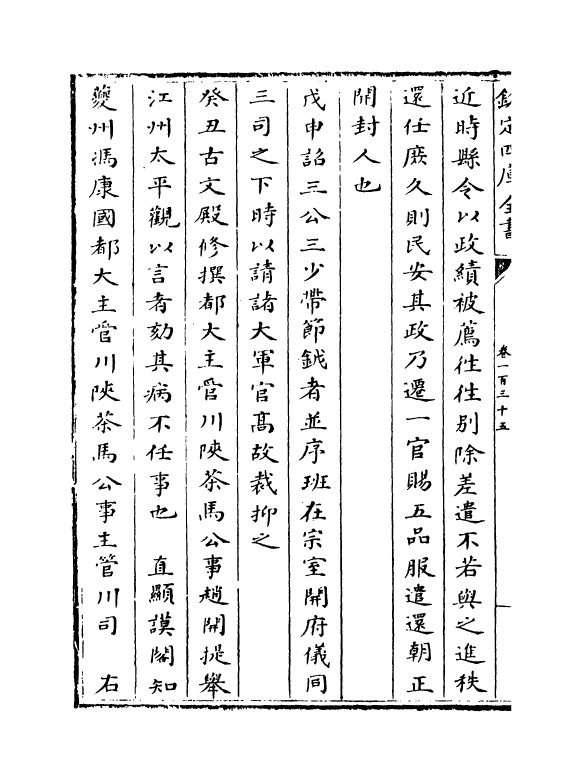 欽定四庫全書
卷一百三十五
近時縣令以政績被薦徃徃别除差遣不若與之進秩
還任庶久則民安其政乃遷一官賜五品服遣還朝正
開封人也
戊申詔三公三少帶節鉞者並序班在宗室開府儀同
三司之下時以請諸大軍官髙故裁抑之
癸丑古文殿修撰都大主管川陜茶馬公事趙開提舉
江州太平觀以言者劾其病不任事也　直顯謨閣知
夔州馮康國都大主管川陜茶馬公事主管川司　右